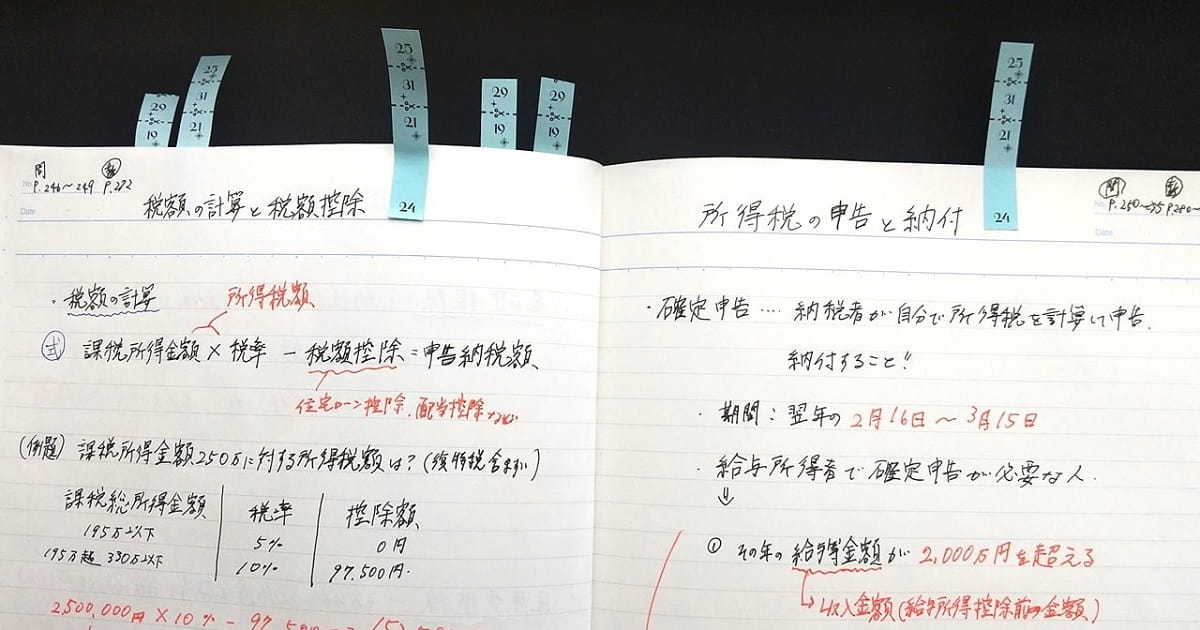 25
31
21
29
19
25
31
21
24
29
19
29
19
25
31
21
24
問
P.246〜249 P.272
No.
Date
税額の計算と税額控除
・税額の計算
所得税額
式 課税所得金額 × 税率 − 税額控除 = 申告納税額
住宅ローン控除、配当控除など
(例題) 課税所得金額250万に対する所得税額は? (復特税含まず)
課税総所得金額 税率 控除額
195万以下 5% 0円
195万超 330万以下 10% 97,500円
2,500,000円 × 10% − 97,500
問
P.250〜
No.
Date
所得税の申告と納付
・確定申告 …. 納税者が自分で所得税を計算して申告、
納付すること!!
・期間 : 翌年の 2月16日 〜 3月15日
・給与所得者で確定申告が必要な人.
⇓
① その年の給与等金額が 2,000万円を超える
収入金額(給与所得控除前の金額)